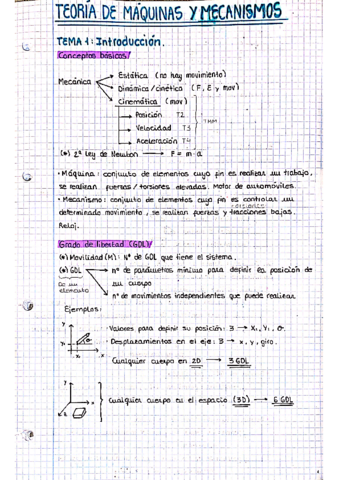 TEORÍA DE MÁQUINAS Y MECANISMOS
TEMA 1: Introducción.
Conceptos básicos/
Mecánica
Estática (no hay movimiento)
Dinámica/cinética (F, E y mov)
Cinemática (mov)
Posición T2
Velocidad T3
Aceleración T4
TMM
(*) 2ª Ley de Newton → F = m·a
· Máquina: conjunto de elementos cuyo fin es realizar un trabajo,
se realizan fuerzas/torsiones elevadas. Motor de automóviles.
· Mecanismo: conjunto de elementos cuyo fin es controlar un
determinado movimiento, se realizan fuerzas y tracciones bajas.
Reloj.
Grado de libertad (GDL)/
(*) Movilidad (M): Nº de GDL que tiene el sistema.
(*) GDL
De un
elemento
nº de parámetros mínimo para definir la posición de
un cuerpo
nº de movimientos independientes que puede realizar
Ejemplos:
· Valores para definir su posición: 3 → X₁, Y₁, θ.
· Desplazamientos en el eje: 3 → x, y, giro.
Cualquier cuerpo en 2D → 3 GDL
Cualquier cuerpo en el espacio (3D) → 6 GDL